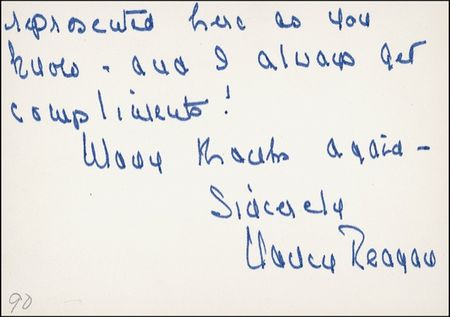 represented here as you
know - and I always get
compliments!
Many thanks again -
Sincerely
Nancy Reagan
90